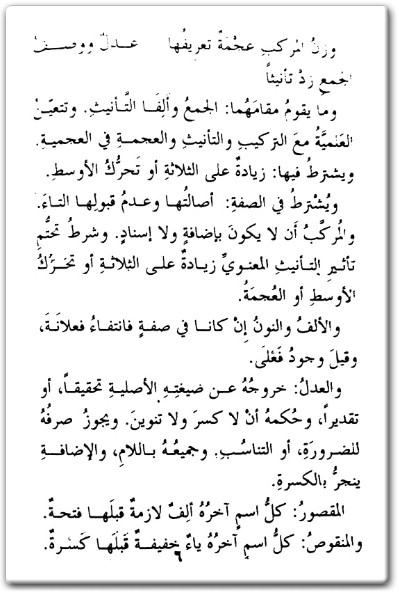 وزنُ المركبِ عجْمَةٌ تعريفُها    عـدلٌ ووصـفُ
الجمعِ زدْ تأنيثاً
وما يقومُ مقامَهُما: الجمعُ وألِفَا التَّأنيثِ. وتتعيّـنُ
العَلميَّةُ معَ التركيبِ والتأنيثِ والعجمـةِ في العجميةِ.
ويشترطُ فيها: زيادةٌ على الثلاثةِ أو تَحرُّكُ الأوسطِ.
ويُشْترطُ في الصفةِ: أصالتُها وعـدمُ قبولِها التـاءَ.
والمُركَّبُ أن لا يكونَ بإضافةٍ ولا إسنادٍ. وشرطُ تحتُّمِ
تأثـيرِ التـأنيثِ المعنـويِّ زيـادةٌ علـى الثلاثـةِ أو تحَـرُّكُ
الأوسطِ أو العُجمَةُ.
والألفُ والنونُ إنْ كانـا في صفـةٍ فانتفـاءُ فعلاَنَـةَ،
وقيلَ وجودُ فَعْلى.
والعدلُ: خروجُهُ عـن صيغتِـهِ الأصليـةِ تحقيقـاً، أو
تقديراً، وحُكمهُ أنْ لا كسرَ ولا تنوينَ. ويجوزُ صرفُهُ
للضـرورَةِ، أو التناسُـبِ. وجميعُـهُ بـاللامِ، والإضافـةِ
ينجرُّ بالكسرةِ.
المقصورُ: كلُّ اسمٍ آخرُهُ ألِفٌ لازمةٌ قبلَهـا فتحـةٌ.
والمنقوصُ: كلُّ اسمٍ آخرُهُ ياءٌ خفيفـةٌ قَبلَهـا كَسْـرةٌ.
٦